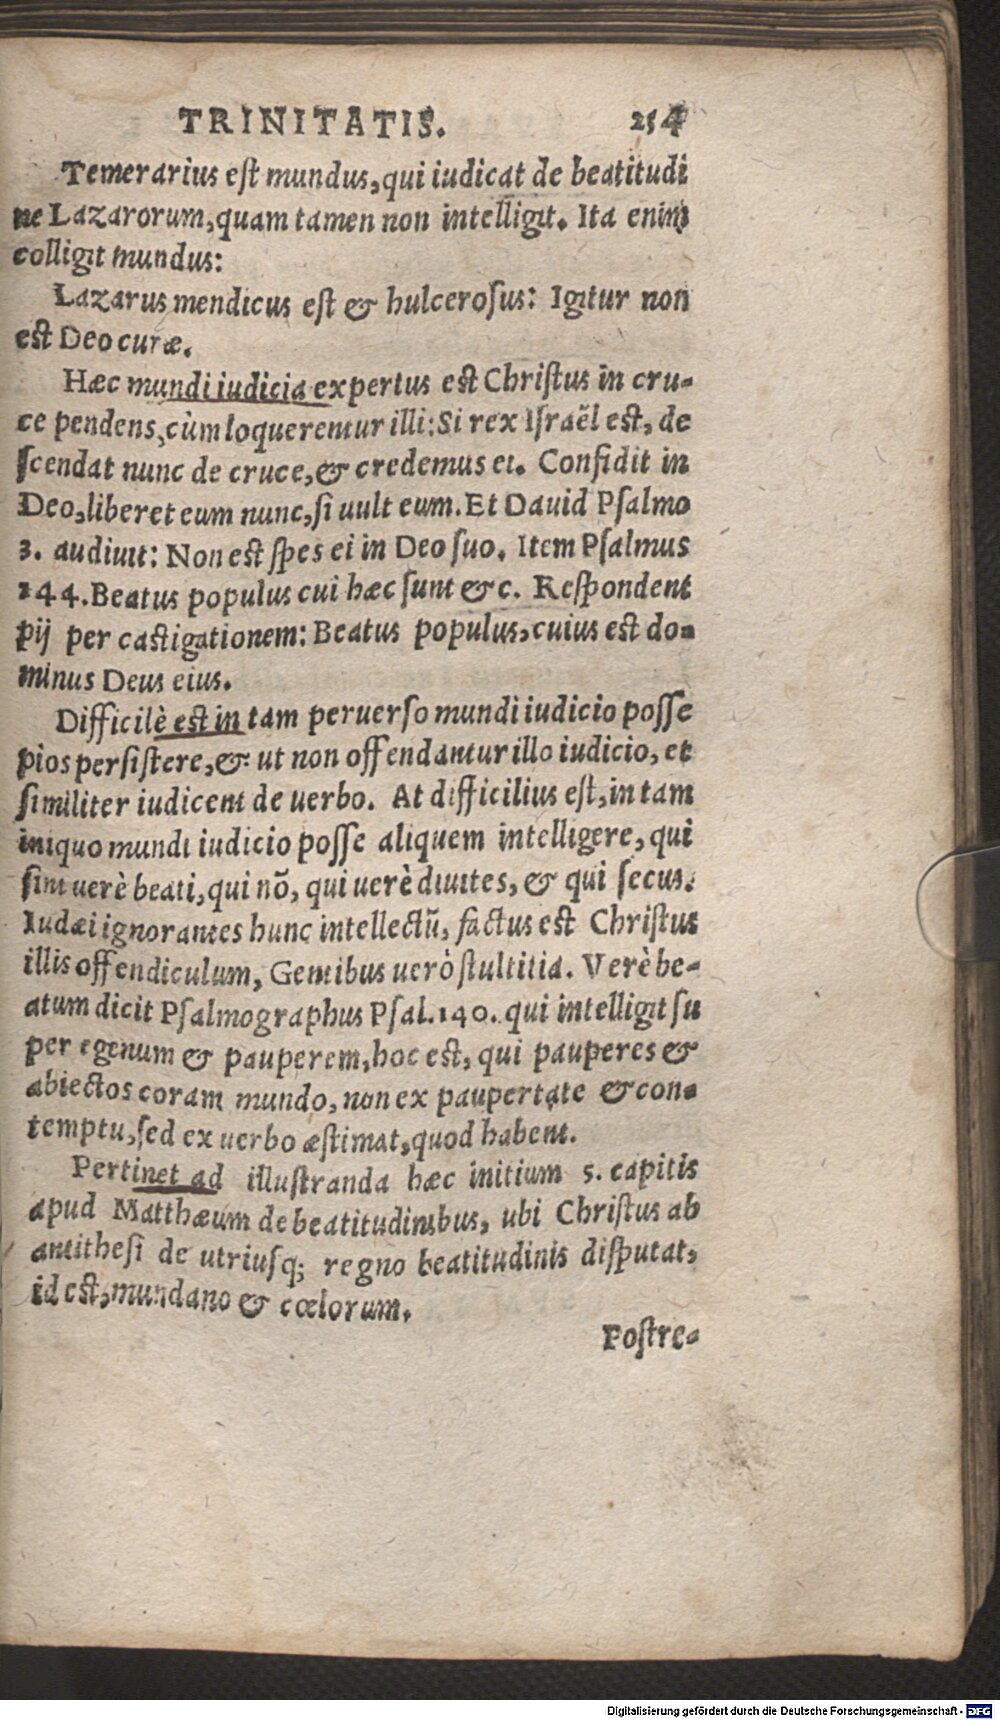 TRINITATIS. 254
Temerarius est mundus, qui iudicat de beatitudi
ne Lazarorum, quam tamen non intelligit. Ita enim
colligit mundus:
Lazarus mendicus est & hulcerosus: Igitur non
est Deo curæ.
Hæc mundi iudicia expertus est Christus in cru-
ce pendens, cùm loquerentur illi: Si rex Israël est, de
scendat nunc de cruce, & credemus ei. Confidit in
Deo, liberet eum nunc, si uult eum. Et Dauid Psalmo
3. audiuit: Non est spes ei in Deo suo. Item Psalmus
144. Beatus populus cui hæc sunt &c. Respondent
pij per castigationem: Beatus populus, cuius est do-
minus Deus eius.
Difficilè est in tam peruerso mundi iudicio posse
pios persistere, & ut non offendantur illo iudicio, et
similiter iudicent de uerbo. At difficilius est, in tam
iniquo mundi iudicio posse aliquem intelligere, qui
sint uerè beati, qui nõ, qui uerè diuites, & qui secus.
Iudæi ignorantes hunc intellectũ, factus est Christus
illis offendiculum, Gentibus uerò stultitia. Verè be-
atum dicit Psalmographus Psal. 140. qui intelligit su
per egenum & pauperem, hoc est, qui pauperes &
abiectos coram mundo, non ex paupertate & con-
temptu, sed ex uerbo æstimat, quod habent.
Pertinet ad illustranda hæc initium 5. capitis
apud Matthæum de beatitudinibus, ubi Christus ab
antithesi de utriusq; regno beatitudinis disputat,
id est, mundano & cœlorum.
Postre-
Digitalisierung gefördert durch die Deutsche Forschungsgemeinschaft - DFG